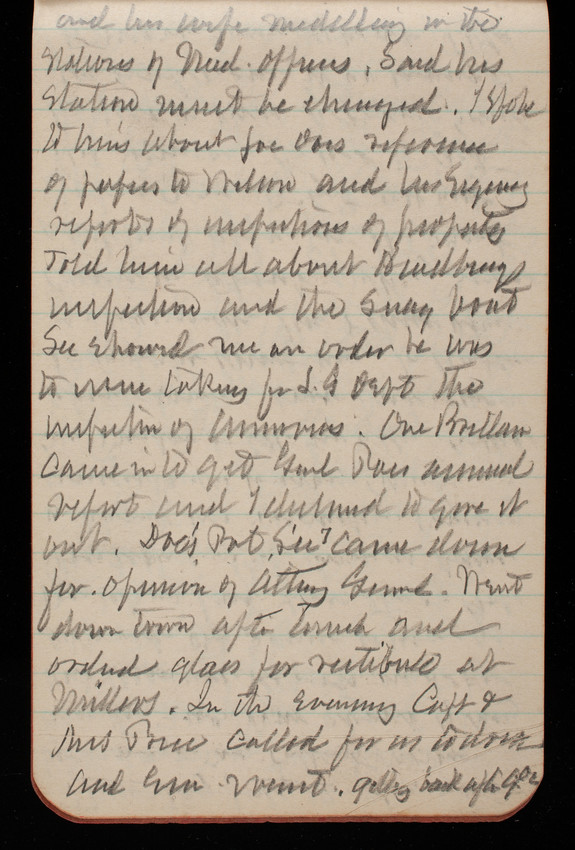 and his wife meddling in the
stations of Med. officers. Said his
station must be changed. I spoke
to him about
of papers to Nelson and his
reports of inspections of property
Told him all about
inspection and the Snag boat
Sec showed me an order he was
to issue taking fr I.G Dept the
inspection of Armories. One Brittan
came in to get Genl annual
report and I declined to give it
out. Doc's came down
for opinion of Atty Genl. Went
down town after lunch and
ordered glass for vestibule at
Millers. In the Evening Capt &
Mrs Price called for us to
and went. getting back after